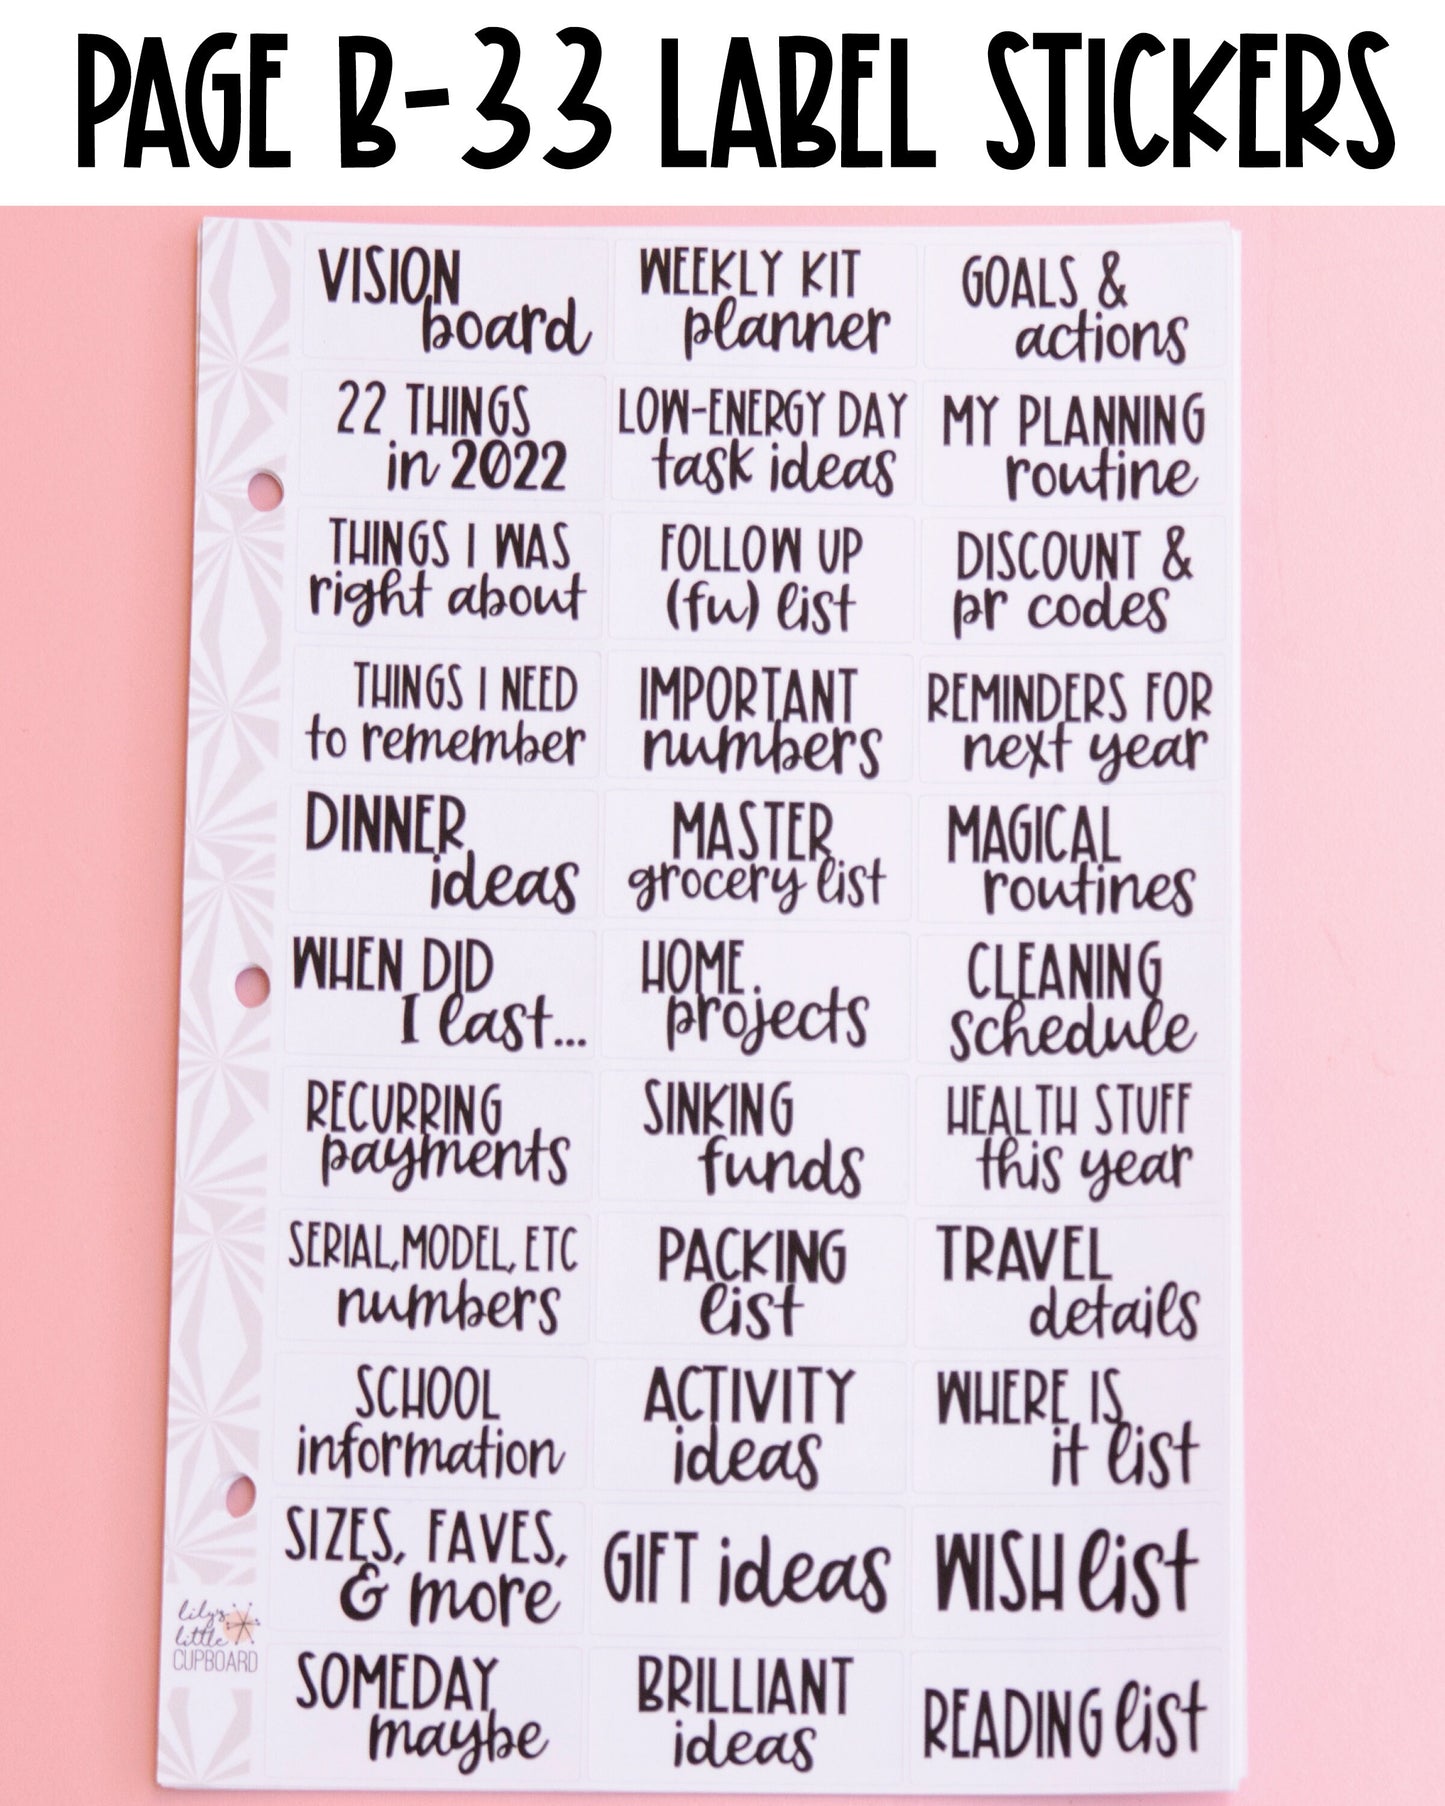 PAGE B-33 LABEL STICKERS
VISION
board
WEEKLY KIT
planner
GOALS &
actions
22 THINGS
in 2022
LOW-ENERGY DAY
task ideas
MY PLANNING
routine
THINGS I WAS
right about
FOLLOW UP
(fu) list
DISCOUNT &
pr codes
THINGS I NEED
to remember
IMPORTANT
numbers
REMINDERS FOR
next year
DINNER
ideas
MASTER
grocery list
MAGICAL
routines
WHEN DID
I last...
HOME
projects
CLEANING
schedule
RECURRING
payments
SINKING
funds
HEALTH STUFF
this year
SERIAL, MODEL, ETC
numbers
PACKING
list
TRAVEL
details
SCHOOL
information
ACTIVITY
ideas
WHERE IS
it list
SIZES, FAVES,
& more
GIFT ideas
WISH list
lily's
little
CUPBOARD
SOMEDAY
maybe
BRILLIANT
ideas
READING list